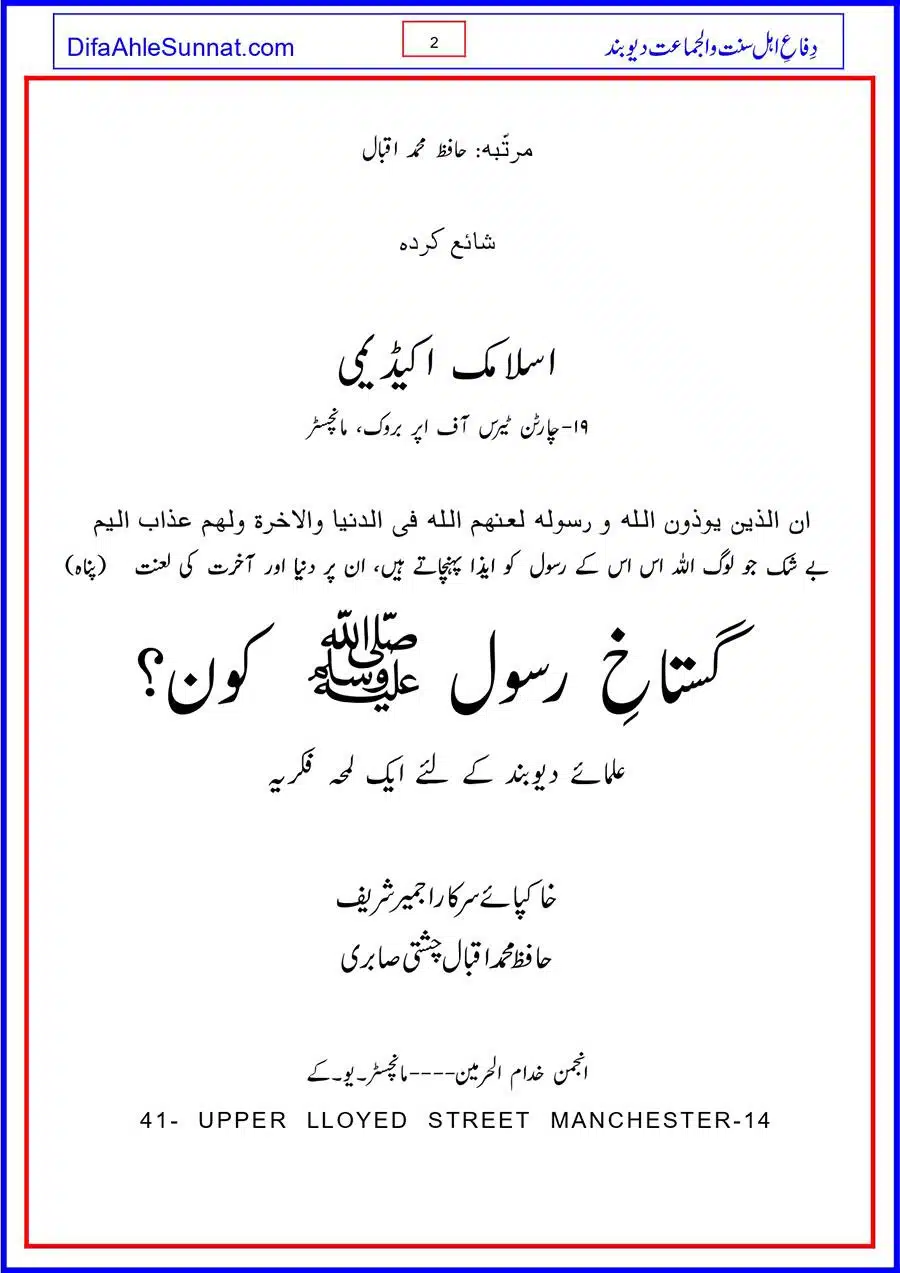 DifaAhleSunnat.com
2
دِفاعِ اہل سنت والجماعت دیوبند
مرتّبہ: حافظ محمد اقبال
شائع کردہ
اسلامک اکیڈیمی
۱۹-چارٹن ٹیرس آف اپر بروک، مانچسٹر
ان الذین یوذون اللہ و رسولہ لعنھم اللہ فی الدنیا والاخرۃ ولھم عذاب الیم
بے شک جو لوگ اللہ اس اس کے رسول کو ایذا پہنچاتے ہیں، ان پر دنیا اور آخرت کی لعنت (پناہ)
گستاخِ رسول ﷺ کون؟
علمائے دیوبند کے لئے ایک لمحہ فکریہ
خاکپائے سرکار اجمیر شریف
حافظ محمد اقبال چشتی صابری
انجمن خدام الحرمین----مانچسٹر۔یو۔کے
41- UPPER LLOYED STREET MANCHESTER-14